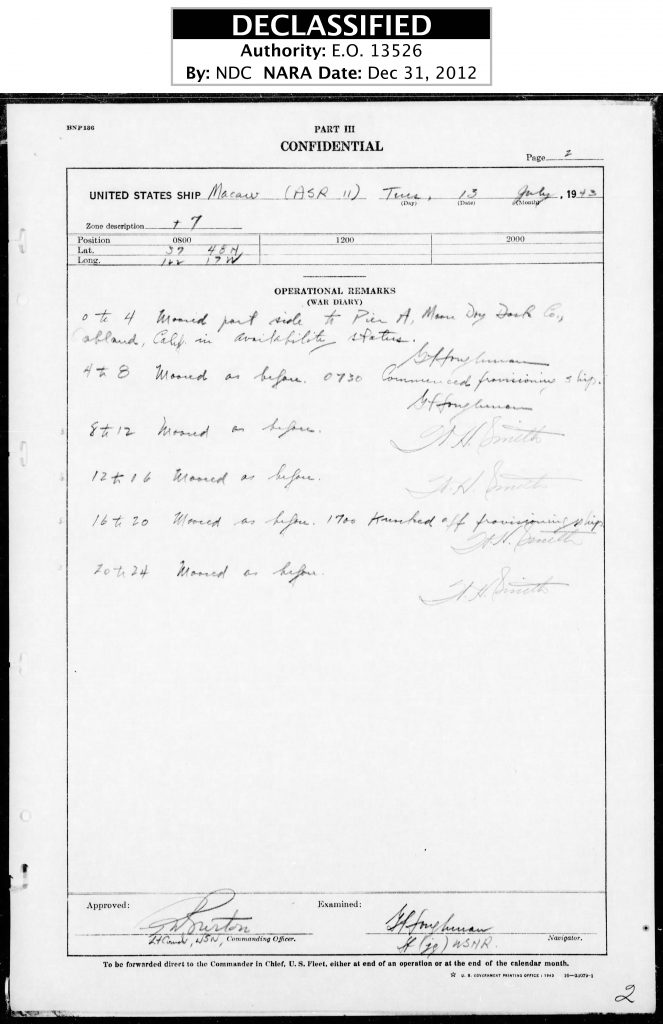 DECLASSIFIED
Authority: E.O. 13526
By: NDC NARA Date: Dec 31, 2012
BNP136
PART III
CONFIDENTIAL
Page 2
UNITED STATES SHIP Macaw (ASR 11) Tues, 13 July, 1943
(Day) (Date) (Month)
Zone description + 7
Position 0800 1200 2000
Lat. 37 48 N
Long. 122 17 W
OPERATIONAL REMARKS
(WAR DIARY)
0 to 4 Moored port side to Pier A, Moore Dry Dock Co.,
Oakland, Calif. in availability status.
4 to 8 Moored as before. 0730 Commenced provisioning ship.
8 to 12 Moored as before.
W. H. Smith
12 to 16 Moored as before.
W. H. Smith
16 to 20 Moored as before. 1700 Knocked off provisioning ship
W. H. Smith
20 to 24 Moored as before.
W. H. Smith
Approved: Examined:
Burton
Lt Comdr, USN, Commanding Officer.
Lt (jg) USNR. Navigator.
To be forwarded direct to the Commander in Chief, U. S. Fleet, either at end of an operation or at the end of the calendar month.
☆ U. S. GOVERNMENT PRINTING OFFICE : 1943
2